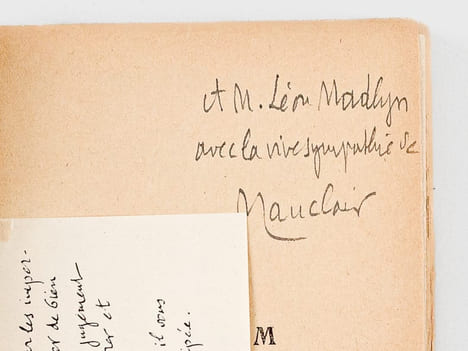 A M. Léon Madlyn
avec la vive sympathie de
Mauclair
M
les imper-
er de bien
jugement
et
il vous